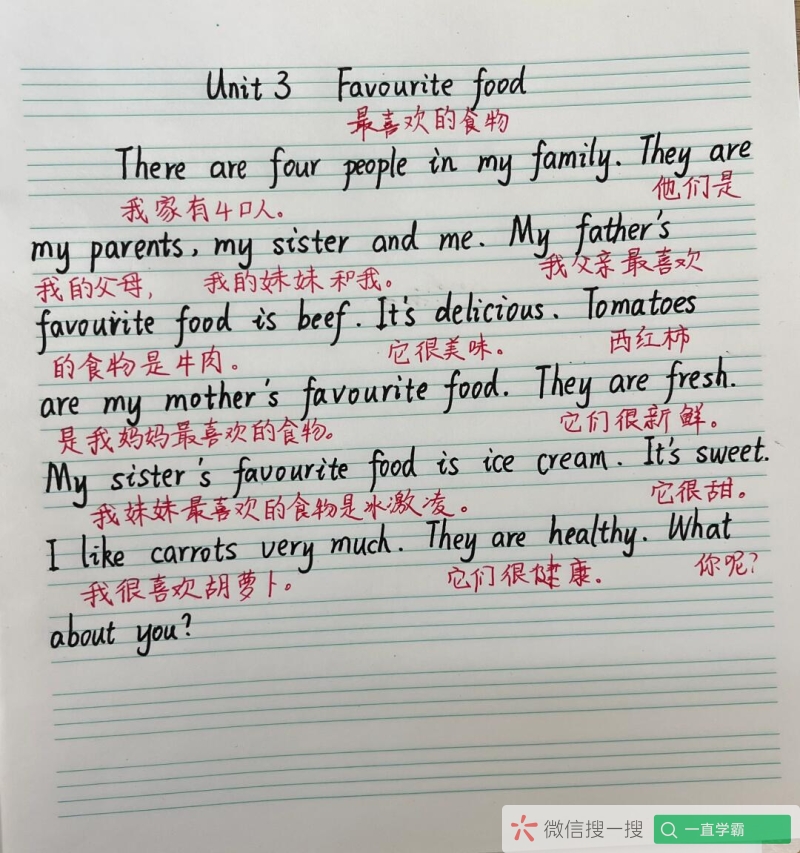 Unit 3 Favourite food
最喜欢的食物
There are four people in my family. They are
我家有4口人。 他们是
my parents, my sister and me. My father's
我的父母, 我的妹妹和我。 我父亲最喜欢
favourite food is beef. It's delicious. Tomatoes
的食物是牛肉。 它很美味。 西红柿
are my mother's favourite food. They are fresh.
是我妈妈最喜欢的食物。 它们很新鲜。
My sister's favourite food is ice cream. It's sweet.
我妹妹最喜欢的食物是冰激凌。 它很甜。
I like carrots very much. They are healthy. What
我很喜欢胡萝卜。 它们很健康。 你呢?
about you?
微信搜一搜 一直学霸